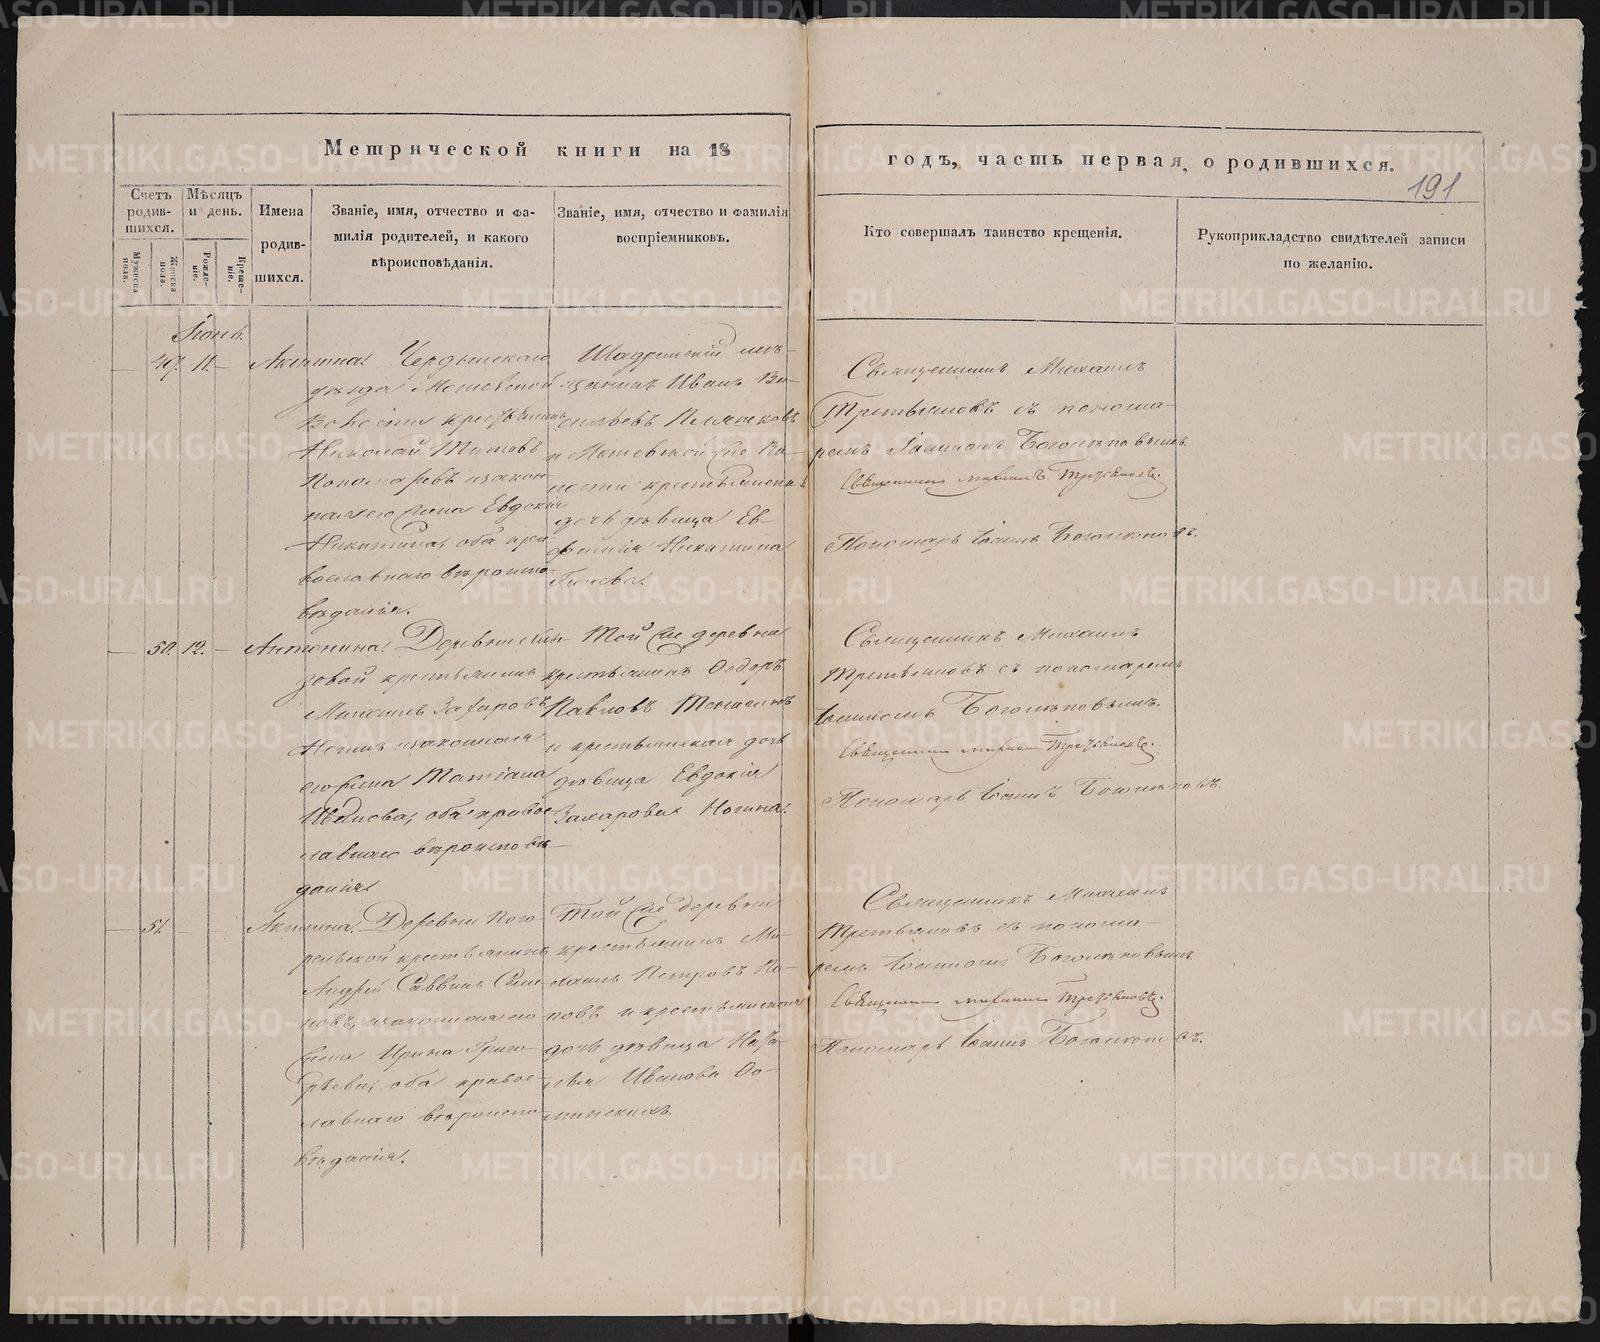 Метрической книги на 18
годъ, часть первая, о родившихся.
191
Счетъ родив-шихся.
Мужеска пола.
Женска пола.
Мѣсяцъ и день.
Рожде-ніе.
Креще-ніе.
Имена
родив-
шихся.
Званіе, имя, отчество и фа-
милія родителей, и какого
вѣроисповѣданія.
Званіе, имя, отчество и фамилія
воспріемниковъ.
Кто совершалъ таинство крещенія.
Рукоприкладство свидѣтелей записи
по желанію.
Іюнь.
49. 11.
Акилина.
Чердынскаго
уѣзда Мошевской
Волости крестьянинъ
Николай Титовъ
Пономаревъ и закон-
ная его жена Евдокія
Никитина, оба пра-
вославнаго вѣроиспо-
вѣданія.
Шадринскій мѣ-
щанинъ Иванъ Ва-
сильевъ
и Мошевской же Во-
лости крестьянская
дочь дѣвица Ев-
фимія Никитина
Священникъ Михаилъ
Третьяковъ съ понома-
ремъ Іоанномъ Боголѣповымъ.
Священникъ Михаилъ Третьяковъ.
Пономарь Іоаннъ Боголѣповъ.
50. 12.
Антонина.
Деревни
зовой крестьянинъ
Максимъ Захаровъ
Ногинъ и законная
его жена Татіана
Иванова, оба право-
славнаго вѣроисповѣ-
данія.
Той же деревни
крестьянинъ Ѳедоръ
Павловъ
и крестьянская дочь
дѣвица Евдокія
Захарова Ногина.
Священникъ Михаилъ
Третьяковъ съ пономаремъ
Іоанномъ Боголѣповымъ.
Священникъ Михаилъ Третьяковъ.
Пономарь Іоаннъ Боголѣповъ.
51.
Акилина.
Деревни
крестьянинъ
Андрей Саввинъ
новъ, и законная его
жена Ирина Григо-
рьева, оба право-
славнаго вѣроиспо-
вѣданія.
Той же деревни
крестьянинъ Ми-
хаилъ Петровъ По-
повъ и крестьянская
дочь дѣвица Ната-
лья Иванова Ѳо-
минскихъ.
Священникъ Михаилъ
Третьяковъ съ понома-
ремъ Іоанномъ Боголѣповымъ.
Священникъ Михаилъ Третьяковъ.
Пономарь Іоаннъ Боголѣповъ.
METRIKI.GASO-URAL.RU